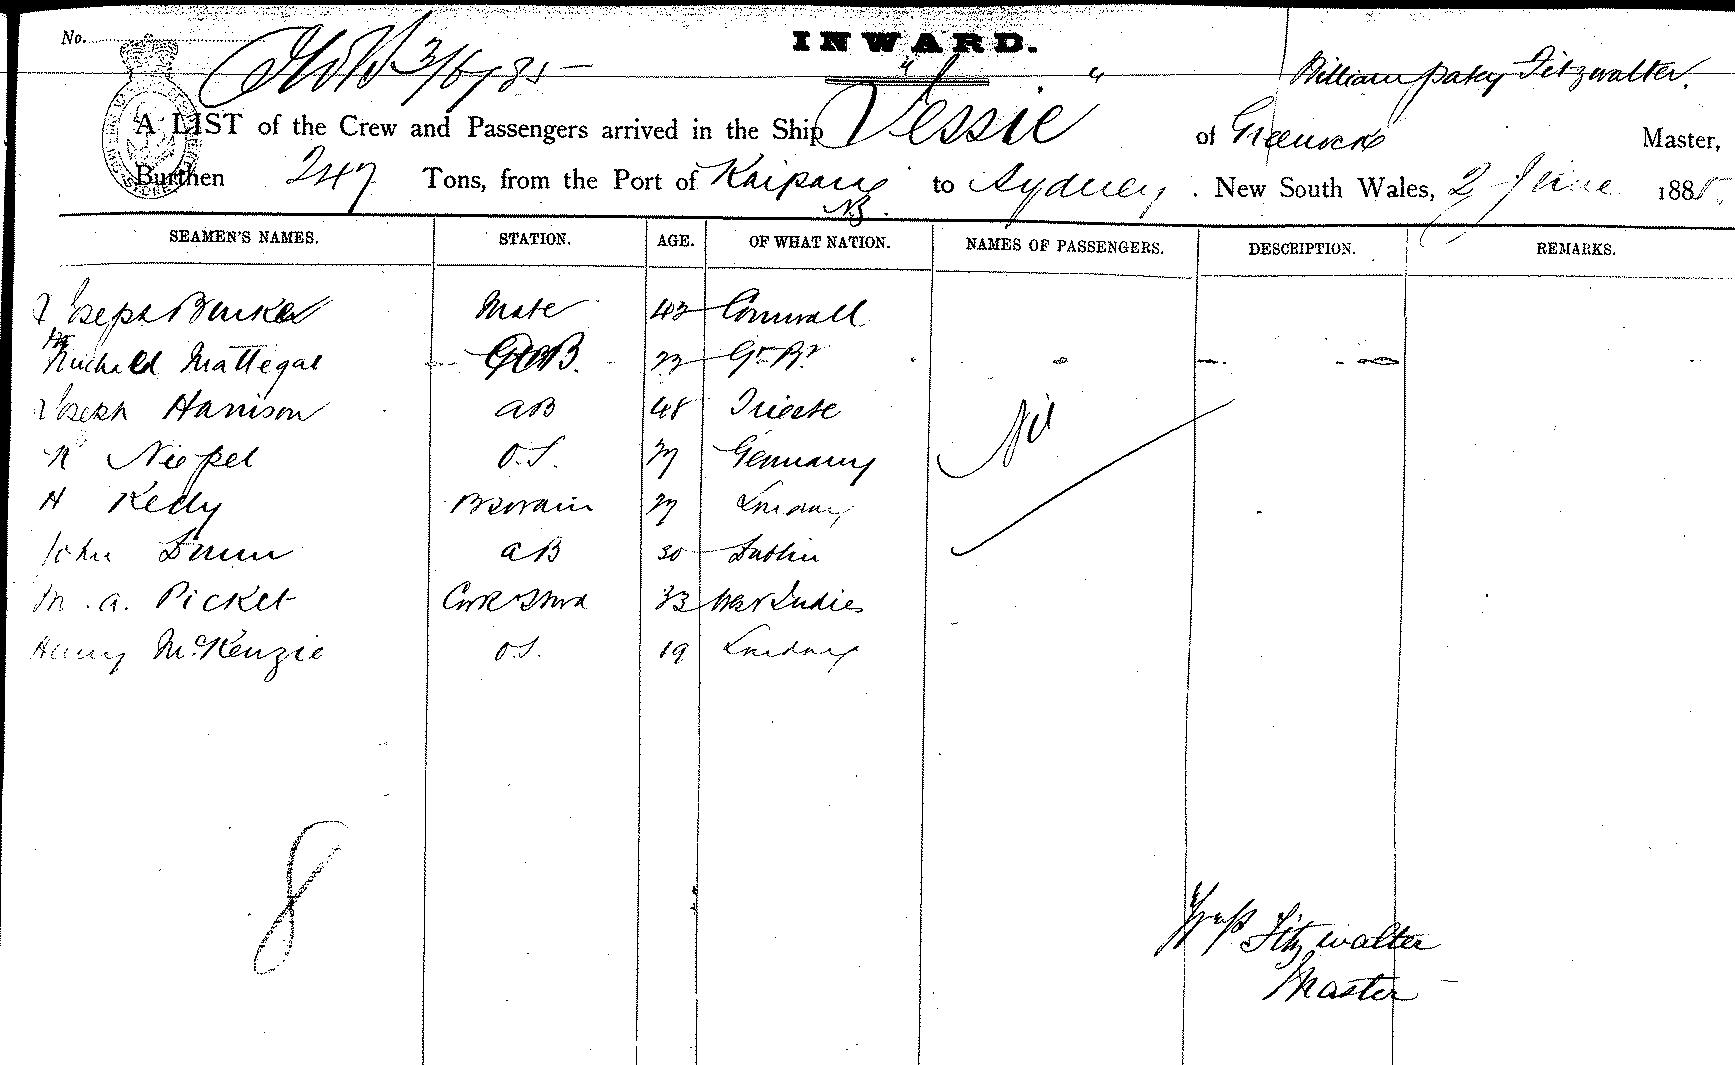 No.
3/6/85
INWARD.
William Fitzwalter.
A LIST of the Crew and Passengers arrived in the Ship "Jessie" of Greenock Master,
Burthen 247 Tons, from the Port of Kaipara NZ. to Sydney. New South Wales, 2 June 1885.
SEAMEN'S NAMES. STATION. AGE. OF WHAT NATION. NAMES OF PASSENGERS. DESCRIPTION. REMARKS.
Joseph Mate 43 Cornwall
Mattegal 23 Gt Br
Joseph Harrison AB 48 Trieste Nil
Niepel O.S. Germany
H Kelly London
John Dunn AB 30 Dublin
M. A. Picket Cook Stwd 33 West Indies
Henry McKenzie O.S. 19 London
8
Fitzwalter
Master